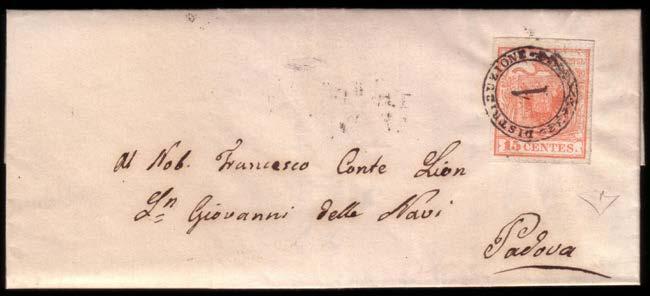 DISTRIBUZIONE
1
15 CENTES.
Al Nob. Francesco Conte Lion
Sn Giovanni delle Navi
Padova